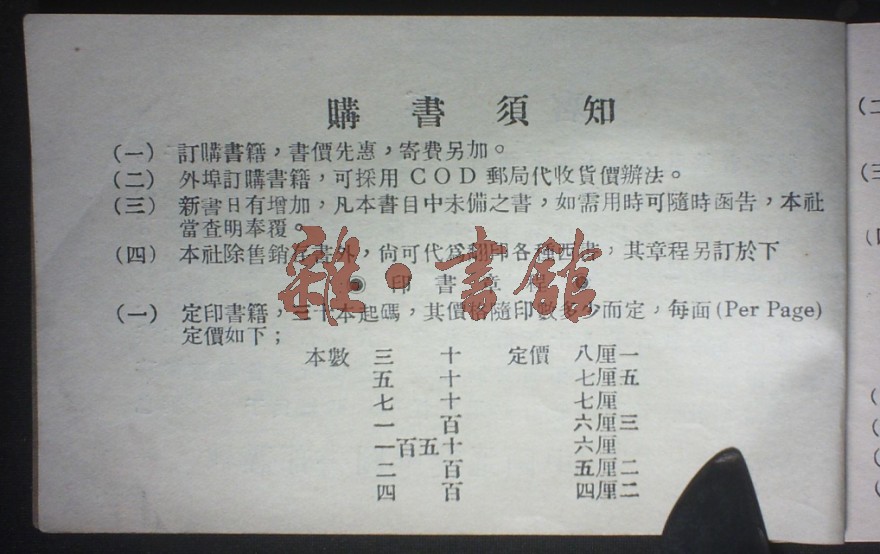 購書須知
(一) 訂購書籍，書價先惠，寄費另加。
(二) 外埠訂購書籍，可採用 COD 郵局代收貨價辦法。
(三) 新書日有增加，凡本書目中未備之書，如需用時可隨時函告，本社
當查明奉覆。
(四) 本社除售銷存書外，尚可代爲翻印各種西書，其章程另訂於下
◉ 印書章程 ◉
(一) 定印書籍，三十本起碼，其價格隨印數多少而定，每面(Per Page)
定價如下；
本數 三十 定價 八厘一
五十 七厘五
七十 七厘
一百 六厘三
一百五十 六厘
二百 五厘二
四百 四厘二
雜·書館
(二
(三
(四
(
(
(
(